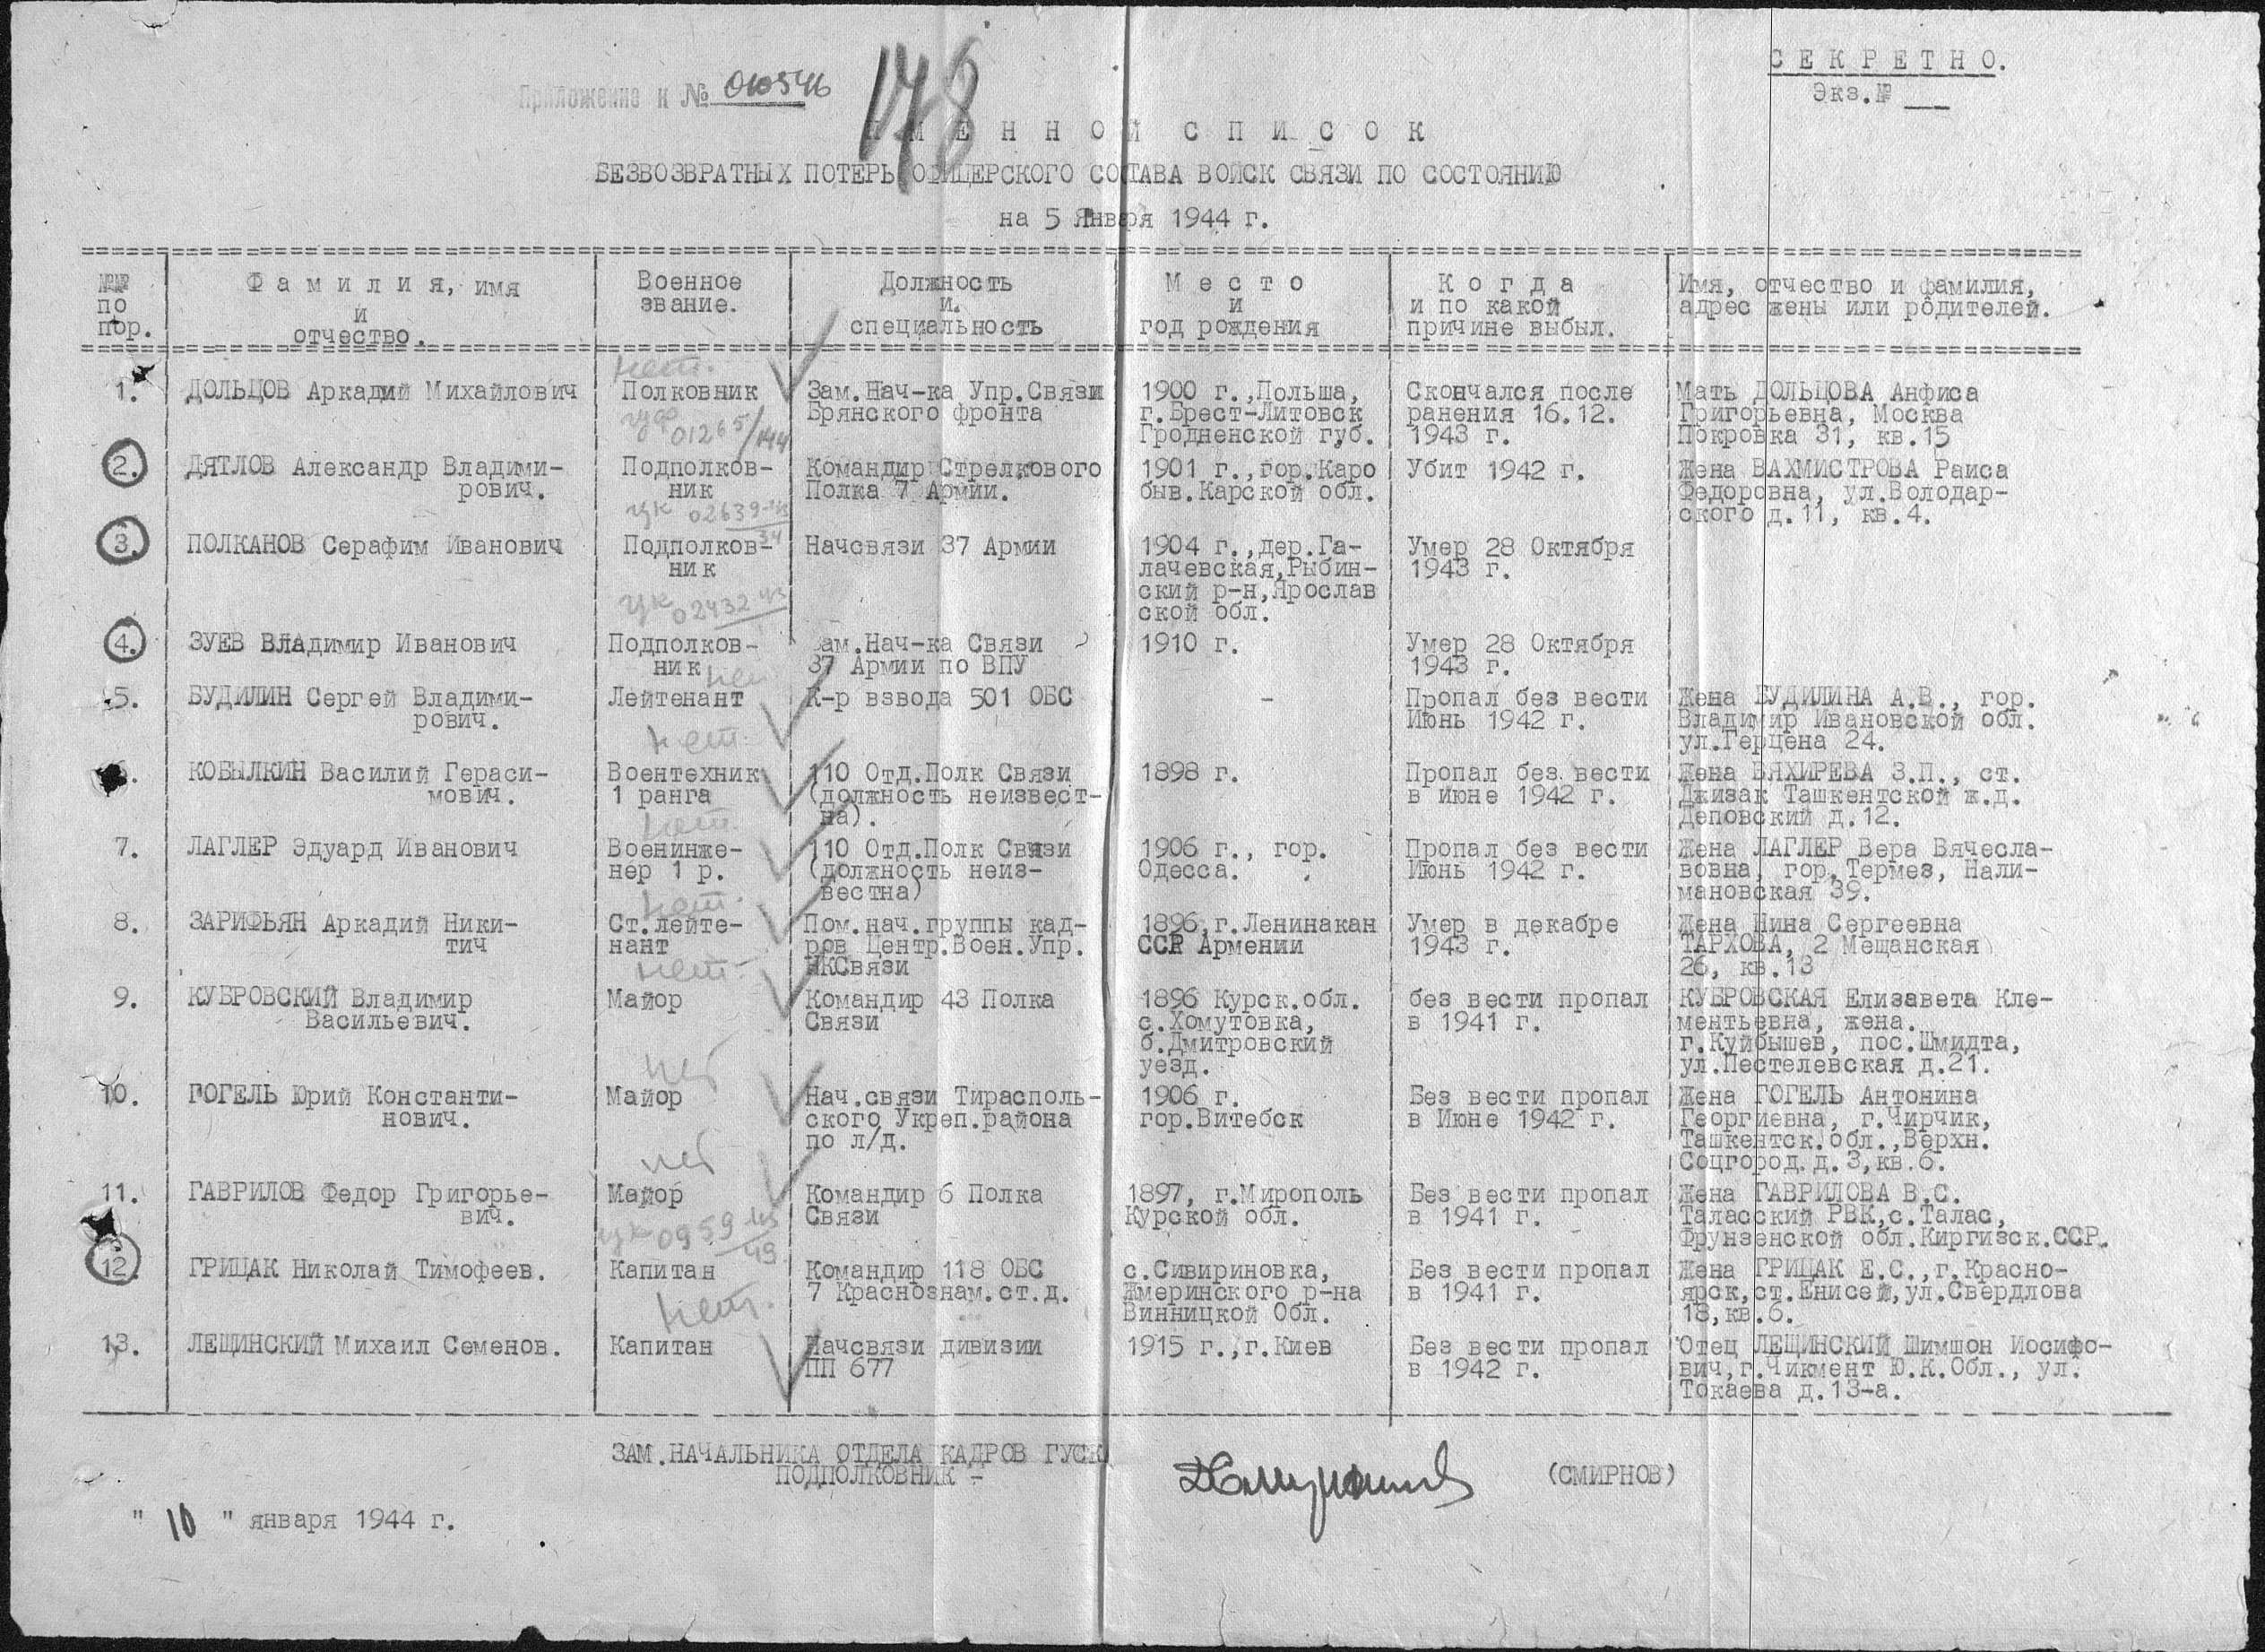 СЕКРЕТНО.
Экз.№ ___
Приложение к № 010546
178
ИМЕННОЙ СПИСОК
БЕЗВОЗВРАТНЫХ ПОТЕРЬ ОФИЦЕРСКОГО СОСТАВА ВОЙСК СВЯЗИ ПО СОСТОЯНИЮ
на 5 Января 1944 г.
№№ по пор. | Фамилия, имя и отчество. | Военное звание. | Должность и. специальность | Место и год рождения | Когда и по какой причине выбыл. | Имя, отчество и фамилия, адрес жены или родителей.
нет.
1. ДОЛЬЦОВ Аркадий Михайлович | Полковник | Зам.Нач-ка Упр.Связи | 1900 г.,Польша, | Скончался после | Мать ДОЛЬЦОВА Анфиса
Брянского фронта | г.Брест-Литовск | ранения 16.12. | Григорьевна, Москва
01265/144 | Гродненской губ. | 1943 г. | Покровка 31, кв.15
2. ДЯТЛОВ Александр Владими- | Подполков- | Командир Стрелкового | 1901 г.,гор.Каро | Убит 1942 г. | Жена ВАХМИСТРОВА Раиса
рович. | ник | Полка 7 Армии. | быв.Карской обл. | Федоровна, ул.Володар-
ук 02639-43 | ского д.11, кв.4.
34
3. ПОЛКАНОВ Серафим Иванович | Подполков- | Начсвязи 37 Армии | 1904 г.,дер.Га- | Умер 28 Октября
ник | лачевская,Рыбин- | 1943 г.
ук 02432 43 | ский р-н,Ярослав
ской обл.
4. ЗУЕВ Владимир Иванович | Подполков- | Зам.Нач-ка Связи | 1910 г. | Умер 28 Октября
ник | 37 Армии по ВПУ | 1943 г.
нет
5. БУДИЛИН Сергей Владими- | Лейтенант | К-р взвода 501 ОБС | - | Пропал без вести | Жена БУДИЛИНА А.В., гор.
рович. | Июнь 1942 г. | Владимир Ивановской обл.
нет. | ул.Герцена 24.
КОБЫЛКИН Василий Гераси- | Воентехник | 110 Отд.Полк Связи | 1898 г. | Пропал без вести | Жена ВЯХИРЕВА З.П., ст.
мович. | 1 ранга | (должность неизвест- | в июне 1942 г. | Джизак Ташкентской ж.д.
нет. | на). | Деповский д.12.
7. ЛАГЛЕР Эдуард Иванович | Военинже- | 110 Отд.Полк Связи | 1906 г., гор. | Пропал без вести | Жена ЛАГЛЕР Вера Вячесла-
нер 1 р. | (должность неиз- | Одесса. | Июнь 1942 г. | вовна, гор.Термез, Нали-
нет. | вестна) | мановская 39.
8. ЗАРИФЬЯН Аркадий Ники- | Ст.лейте- | Пом.нач.группы кад- | 1896,г.Ленинакан | Умер в декабре | Жена Нина Сергеевна
тич | нант | ров Центр.Воен.Упр. | ССР Армении | 1943 г. | ТАРХОВА, 2 Мещанская
нет. | НКСвязи | 26, кв.13
9. КУБРОВСКИЙ Владимир | Майор | Командир 43 Полка | 1896 Курск.обл. | без вести пропал | КУБРОВСКАЯ Елизавета Кле-
Васильевич. | Связи | с.Хомутовка, | в 1941 г. | ментьевна, жена.
б.Дмитровский | г.Куйбышев, пос.Шмидта,
нет | уезд. | ул.Пестелевская д.21.
10. ГОГЕЛЬ Юрий Константи- | Майор | Нач.связи Тирасполь- | 1906 г. | Без вести пропал | Жена ГОГЕЛЬ Антонина
нович. | ского Укреп.района | гор.Витебск | в Июне 1942 г. | Георгиевна, г.Чирчик,
по л/д. | Ташкентск.обл.,Верхн.
нет | Соцгород.д.3,кв.6.
11. ГАВРИЛОВ Федор Григорье- | Майор | Командир 6 Полка | 1897, г.Мирополь | Без вести пропал | Жена ГАВРИЛОВА В.С.
вич. | Связи | Курской обл. | в 1941 г. | Таласский РВК,с.Талас,
ук 0959 43 | Фрунзенской обл.Киргизск.ССР.
49
12. ГРИЦАК Николай Тимофеев. | Капитан | Командир 118 ОБС | с.Сивириновка, | Без вести пропал | Жена ГРИЦАК Е.С.,г.Красно-
7 Краснознам.ст.д. | Жмеринского р-на | в 1941 г. | ярск,ст.Енисей,ул.Свердлова
нет. | Винницкой Обл. | 18,кв.6.
13. ЛЕЩИНСКИЙ Михаил Семенов. | Капитан | Начсвязи дивизии | 1915 г.,г.Киев | Без вести пропал | Отец ЛЕЩИНСКИЙ Шимшон Иосифо-
ПП 677 | в 1942 г. | вич,г.Чикмент Ю.К.Обл., ул.
Токаева д.13-а.
ЗАМ.НАЧАЛЬНИКА ОТДЕЛА КАДРОВ ГУСК
ПОДПОЛКОВНИК - (СМИРНОВ)
" 10 " января 1944 г.